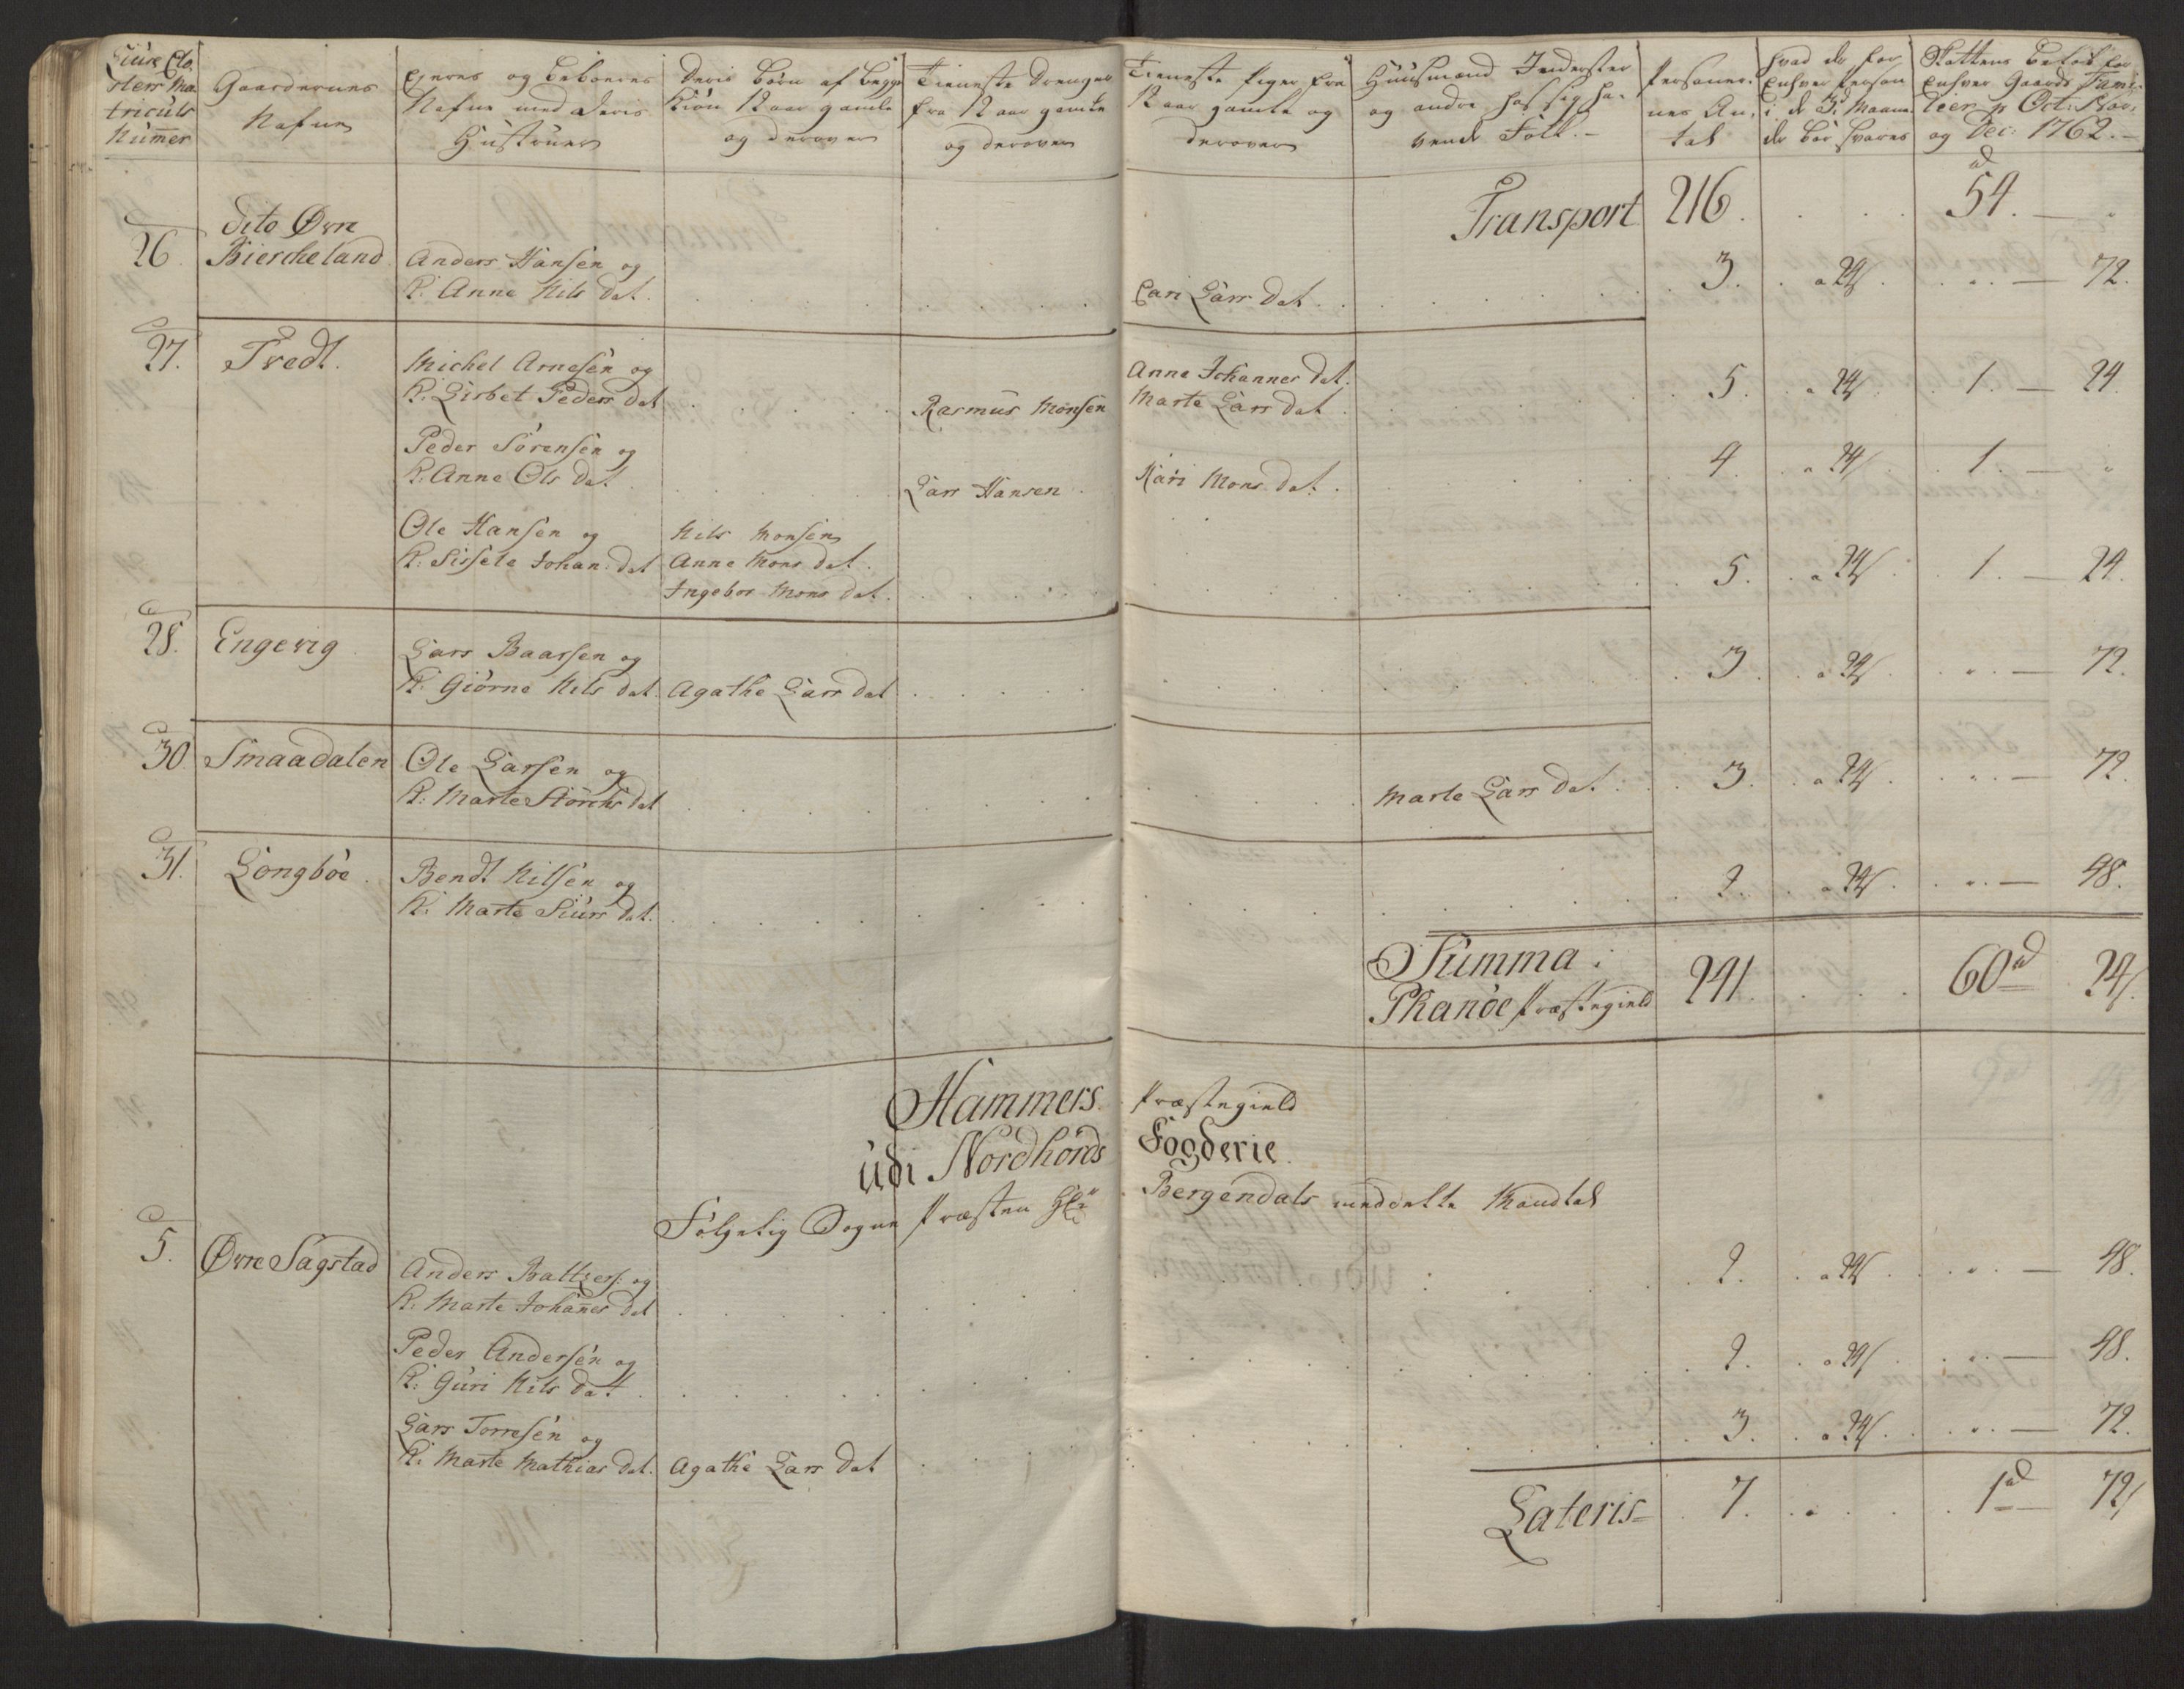 Liüse Clo-
sters Ma-
triculs
Nümer
Gaardernes
Nafne
Ejeres og Beboeres
Nafne med deris
Hüstruer
Deris Børn af begge
Kiøn 12 aar gamle
og derover
Tieneste Drenge
fra 12 aar gamle
og derover
Tieneste Piger fra
12 aar gamle og
derover
Huusmænd Inderster
og andre hos sig ha-
vende Folk.
Personer-
nes An-
tal
hvad der for
Enhver Person
i de 3de Maane-
der bør svares
Skattens Beløb for
Enhver Gaards Fami-
lier p Oct: Nov:
og Dec: 1762.
Transport 216. . . . 54. — "
26. Dito Øvre
Bierckeland Anders Hansen og
K: Anne Nils dat. Cari Lars dat . 3. a 24 ß . ". — 72.
27. Tvedt. Michel Arnesen og
K: Lisbet Peders dat Rasmus Monsen Anna Johannes dat.
Marte Lars dat 5. a 24 ß. 1. — 24.
Peder Sørensen og
K: Anne Ols dat Lars Hansen Kari Mons dat. 4. a 24 ß 1. — "
Ole Hansen og Nils Monsen
K: Sissele Johan: dat Anne Mons dat.
Ingebor Mons dat. 5. a 24 ß. 1. — 24.
28. Engevig Lars Baarsen og
K: Giörne Nils dat. Agathe Lars dat 3. a 24 ß. ". — 72.
30. Smaadalen Ole Larsen og
K: Marte Störchs dat Marte Lars dat: 3. a 24 ß. ". — 72.
31. Longböe Bendt Nilsen og
K: Marte Siurs dat. 2. a 24 ß. ". — 48.
Summa:
Phanöe Præstegield 241. 60 — 24 ß.
Hammers Præstegield
üdi Nordhords Fogderie
Følgelig Sogne Præsten Hr: Bergendals meddelte Mandtal
5. Øvre Sagstad Anders Baltzers: og
K: Marte Johanes dat 2. a 24 ß. ". — 48.
Peder Andersen og
K: Güri Nils dat 2. a 24 ß. ". — 48.
Lars Torresen og
K: Marte Mathias dat. Agathe Lars dat 3. a 24 ß. ". — 72.
Lateris 7. 1 — 72 ß